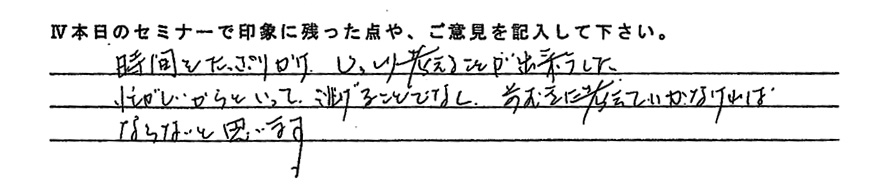 Ⅳ本日のセミナーで印象に残った点や、ご意見を記入して下さい。
時間をたっぷりかけ、じっくり考えることが出来ました
忙がしいからといって、逃げることでなく、前むきに考えていかなければ
ならないと思います